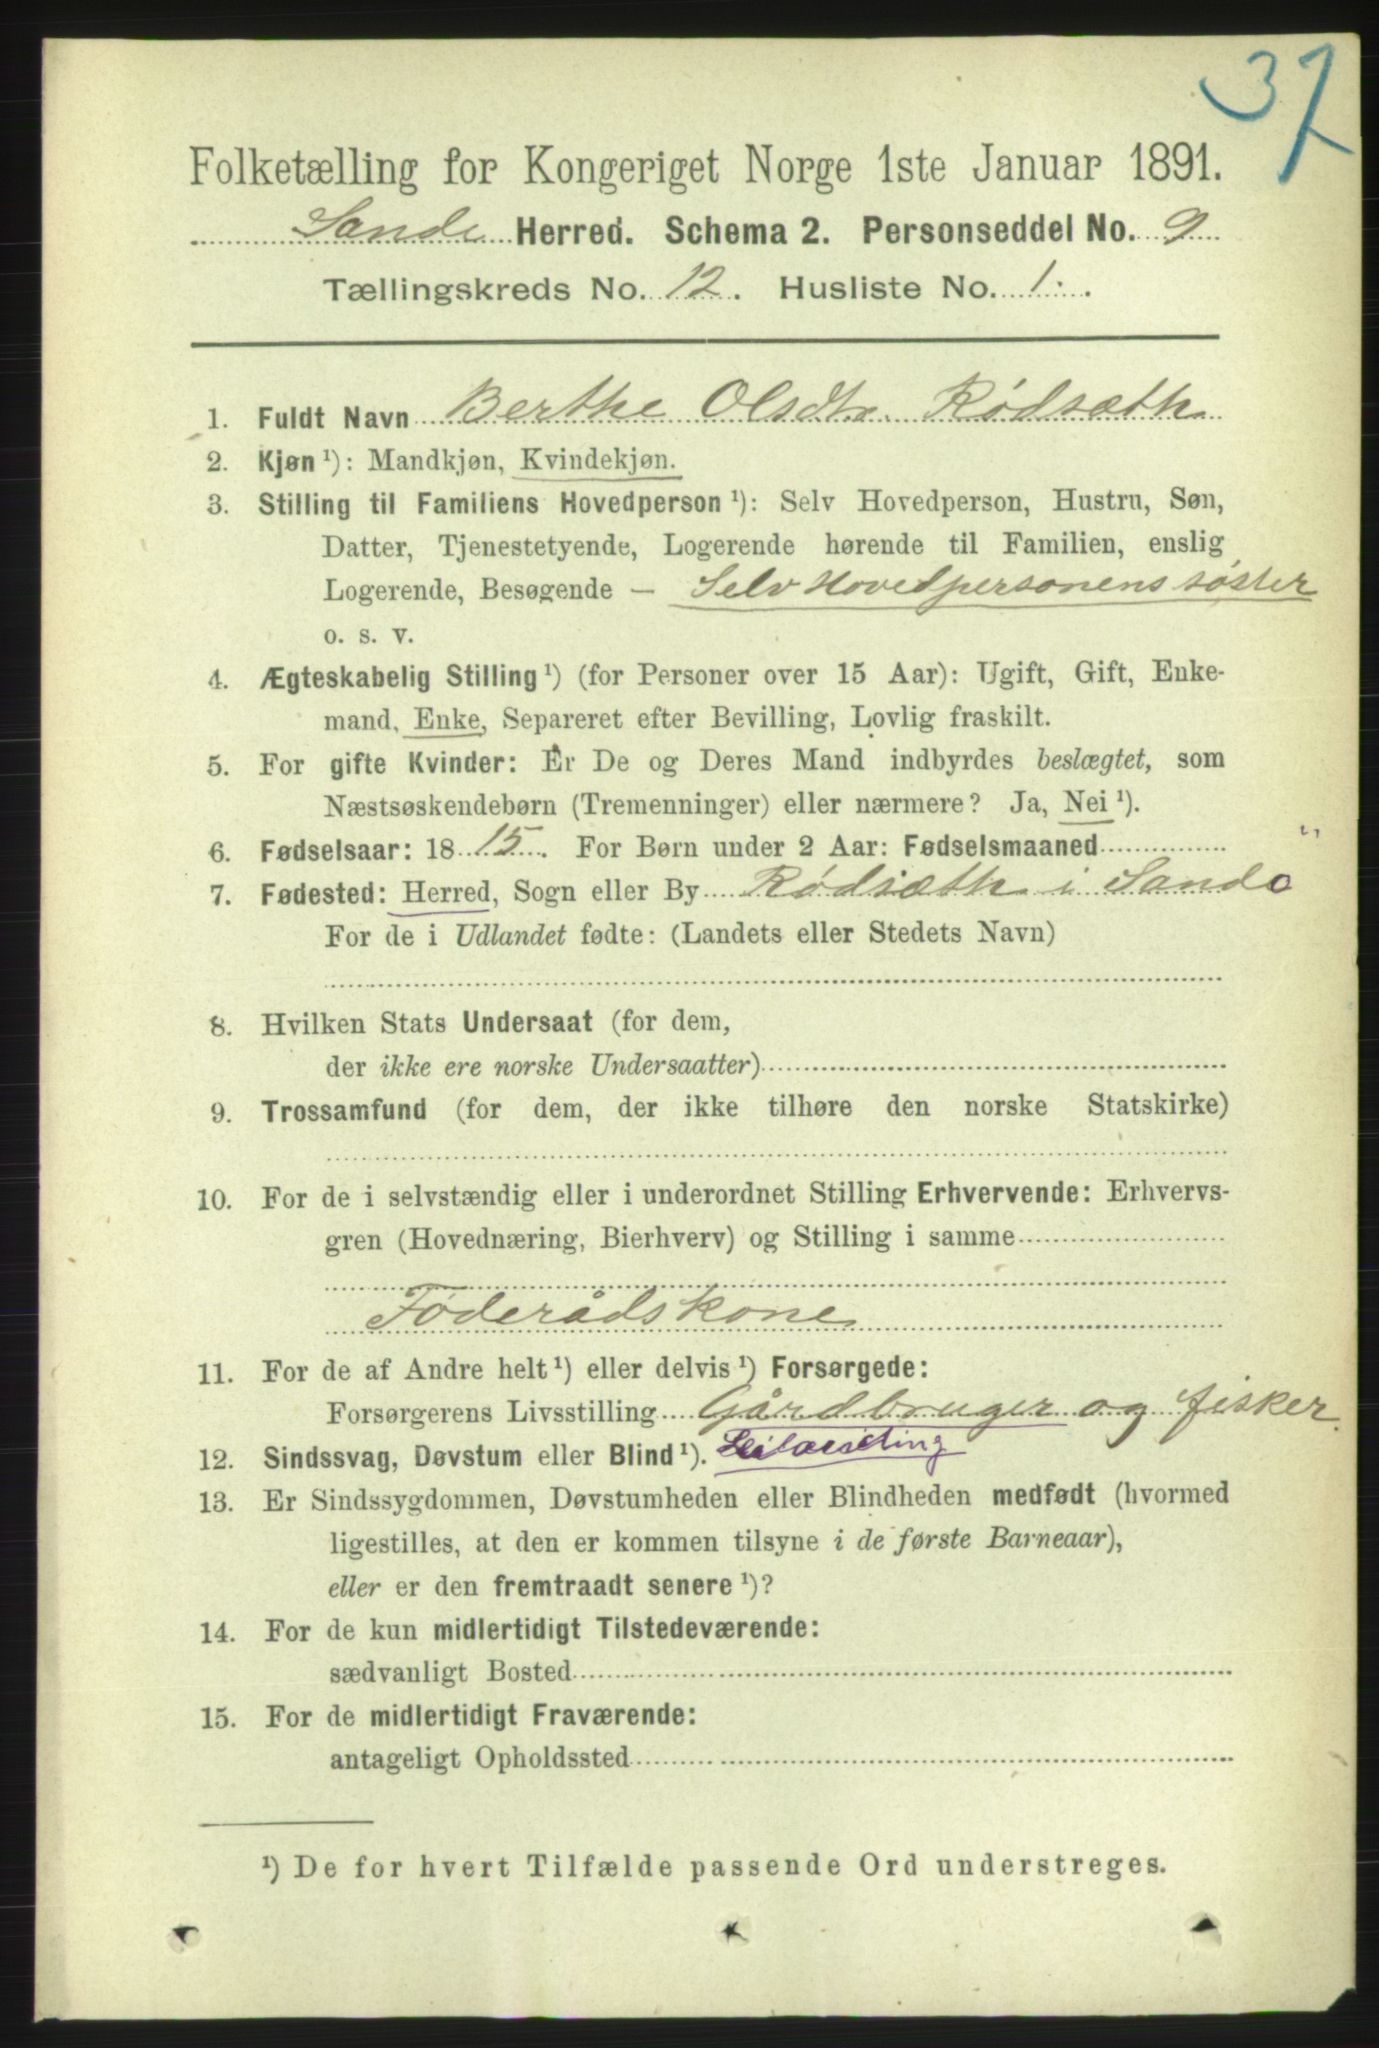 37
Folketælling for Kongeriget Norge 1ste Januar 1891.
Sande Herred. Schema 2. Personseddel No. 9
Tællingskreds No. 12. Husliste No. 1.
1. Fuldt Navn Berthe Olsdtr. Rødsæth
2. Kjøn ¹): Mandkjøn, Kvindekjøn.
3. Stilling til Familiens Hovedperson ¹): Selv Hovedperson, Hustru, Søn,
Datter, Tjenestetyende, Logerende hørende til Familien, enslig
Logerende, Besøgende — Selv Hovedpersonens søster
o. s. v.
4. Ægteskabelig Stilling ¹) (for Personer over 15 Aar): Ugift, Gift, Enke-
mand, Enke, Separeret efter Bevilling, Lovlig fraskilt.
5. For gifte Kvinder: Er De og Deres Mand indbyrdes beslægtet, som
Næstsøskendebørn (Tremenninger) eller nærmere? Ja, Nei ¹).
6. Fødselsaar: 1815. For Børn under 2 Aar: Fødselsmaaned "
7. Fødested: Herred, Sogn eller By Rødsæth i Sande
For de i Udlandet fødte: (Landets eller Stedets Navn)
8. Hvilken Stats Undersaat (for dem,
der ikke ere norske Undersaatter)
9. Trossamfund (for dem, der ikke tilhøre den norske Statskirke)
10. For de i selvstændig eller i underordnet Stilling Erhvervende: Erhvervs-
gren (Hovednæring, Bierhverv) og Stilling i samme
Føderådskone
11. For de af Andre helt ¹) eller delvis ¹) Forsørgede:
Forsørgerens Livsstilling Gårdbruger og fisker.
12. Sindssvag, Døvstum eller Blind ¹).
13. Er Sindssygdommen, Døvstumheden eller Blindheden medfødt (hvormed
ligestilles, at den er kommen tilsyne i de første Barneaar),
eller er den fremtraadt senere ¹)?
14. For de kun midlertidigt Tilstedeværende:
sædvanligt Bosted
15. For de midlertidigt Fraværende:
antageligt Opholdssted
¹) De for hvert Tilfælde passende Ord understreges.